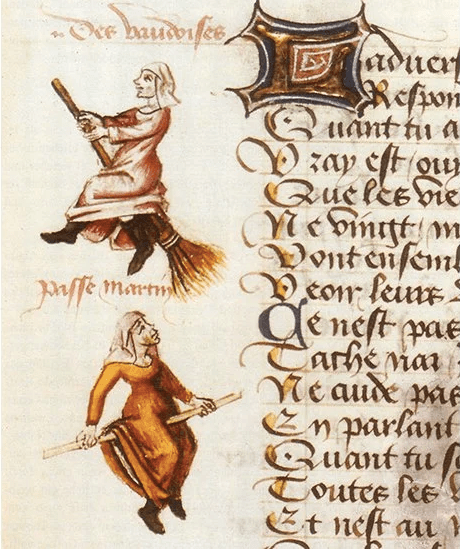 Des vaudoises
Laduers
Respon
Quant tu a
Vray est ouy
Que les vie
Ne vingt m
Vont ensembl
passe martin
Veoir leurs
Ce nest pas
Tache nar
Ne cuide pas
En parlant
Quant tu
Toutes les
Et nest au